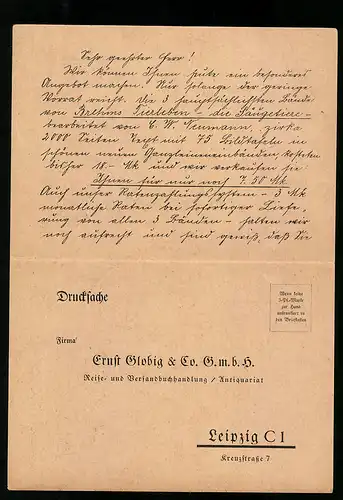 Sehr geehrter Herr!
Wir können Ihnen heute ein besonderes
Angebot machen. Nur solange der geringe
Vorrat reicht. Die 3 hauptsächlichsten Bände
von Brehms Tierleben - die Säugetiere -
bearbeitet von C. W. Neumann, zirka
2000 Seiten Text mit 75 Bildtafeln in
schönen neuen Ganzleinenbänden kosteten
bisher 18.- Mk und wir verkaufen sie
Ihnen für nur noch 7.50 Mk.
Auch unser Ratenzahlungssystem - 3 Mk
monatliche Raten bei sofortiger Liefe-
rung von allen 3 Bänden - halten wir
noch aufrecht und sind gewiß, daß Sie
Drucksache
Wenn keine
3-Pf.-Marke
zur Hand
unfrankiert in
den Briefkasten
Firma
Ernst Globig & Co. G.m.b.H.
Reise- und Versandbuchhandlung / Antiquariat
Leipzig C 1
Kreuzstraße 7